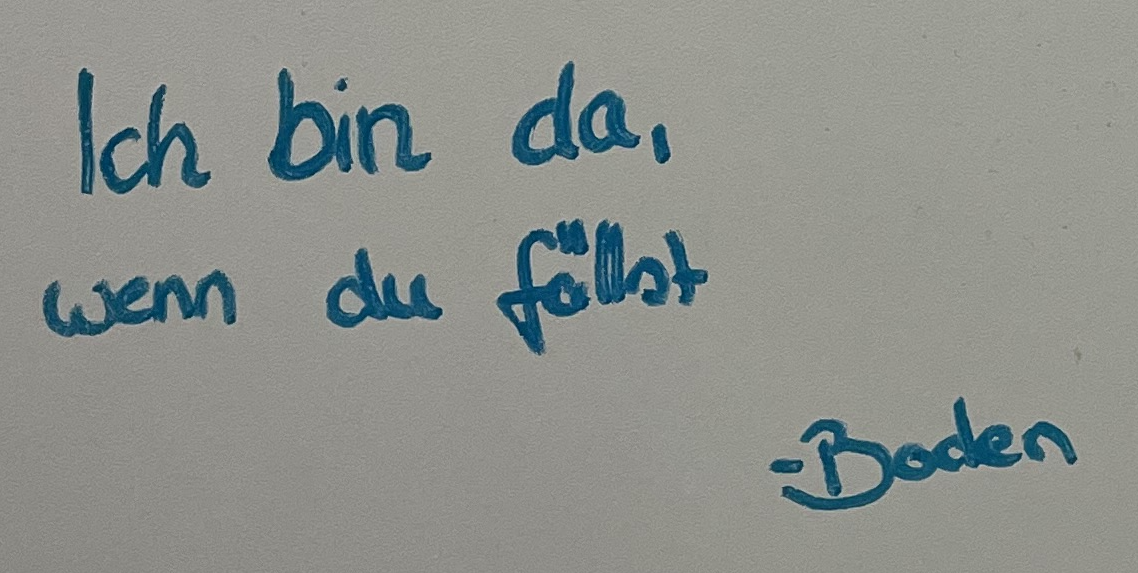 Ich bin da,
wenn du fällst
-Boden